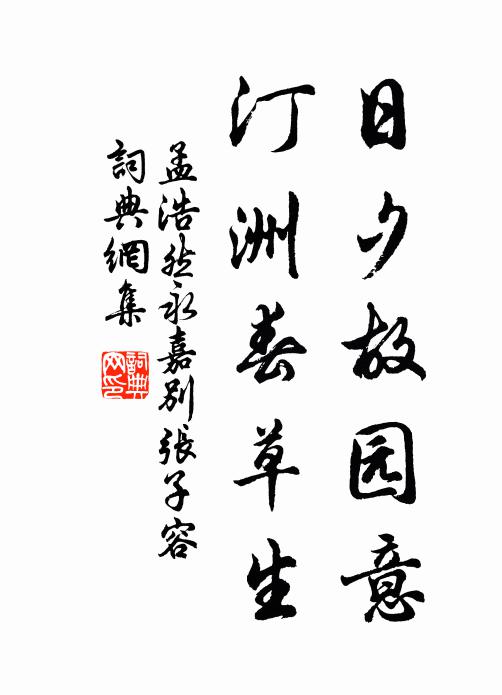 日夕故园意
汀洲春草生
孟浩然永嘉別張子容
詞典網集
詞典网印